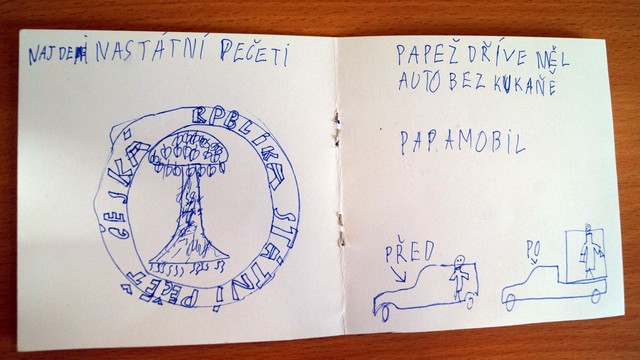 NAJDEMI NA STÁTNÍ PEČETI
ČESKÁ RPBLIKA STÁTNÍ PEČEŤ
PAPEŽ DŘÍVE MĚL
AUTO BEZ KUKANĚ
PAPAMOBIL
PŘED
PO